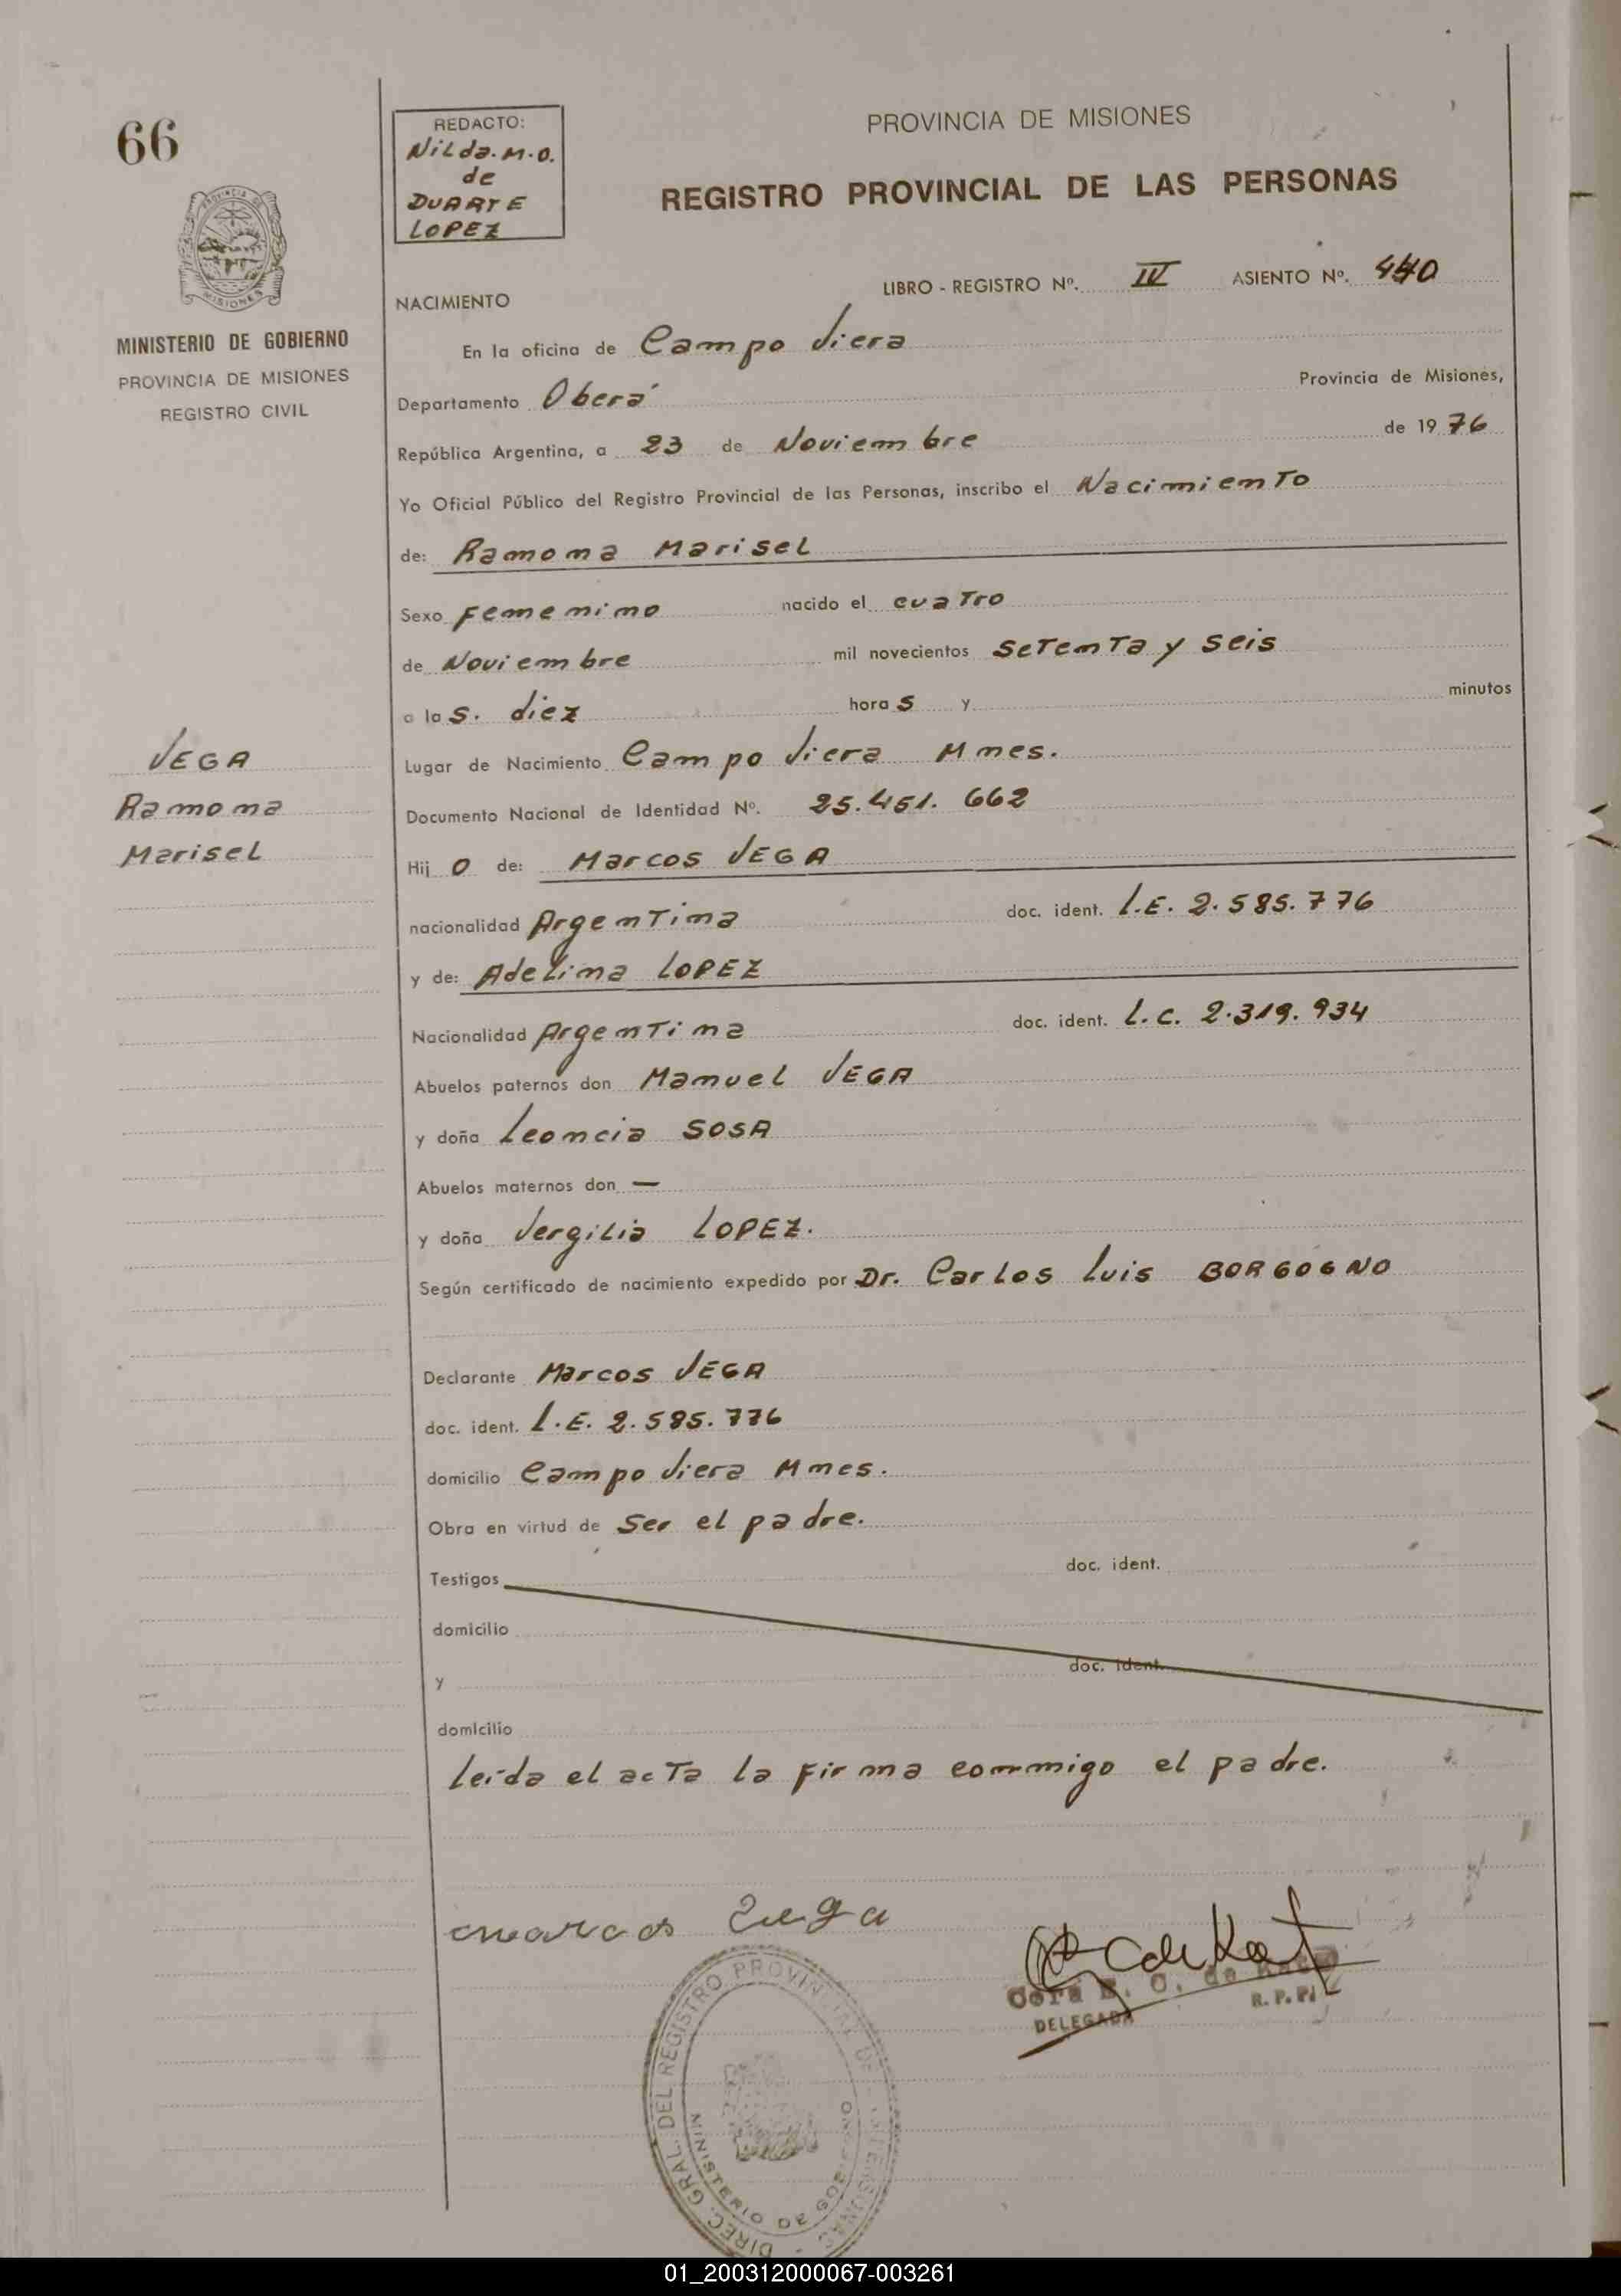 66
REDACTO:
Nilda. M. O.
de
DUARTE
LOPEZ
PROVINCIA DE MISIONES
REGISTRO PROVINCIAL DE LAS PERSONAS
MINISTERIO DE GOBIERNO
PROVINCIA DE MISIONES
REGISTRO CIVIL
LIBRO - REGISTRO Nº. IV ASIENTO Nº. 440
NACIMIENTO
En la oficina de Campo Viera
Departamento Oberá Provincia de Misiones,
República Argentina, a 23 de Noviembre de 1976
Yo Oficial Público del Registro Provincial de las Personas, inscribo el Nacimiento
de: Ramona Marisel
Sexo Femenino nacido el cuatro
de Noviembre mil novecientos setenta y seis
a las. diez horas y minutos
VEGA
Ramona
Marisel
Lugar de Nacimiento Campo Viera Mnes.
Documento Nacional de Identidad Nº. 25.451.662
Hijo de: Marcos VEGA
nacionalidad Argentina doc. ident. L.E. 2.585.776
y de: Adelina LOPEZ
Nacionalidad Argentina doc. ident. L.C. 2.319.934
Abuelos paternos don Manuel VEGA
y doña Leoncia SOSA
Abuelos maternos don —
y doña Vergilia LOPEZ.
Según certificado de nacimiento expedido por Dr. Carlos Luis BORGOGNO
Declarante Marcos VEGA
doc. ident. L.E. 2.585.776
domicilio Campo Viera Mnes.
Obra en virtud de ser el padre.
Testigos doc. ident.
domicilio
y doc. ident.
domicilio
leída el acta la firma conmigo el padre.
marcos Vega
DELEGADA R. P. P.
DIREC. GRAL. DEL REGISTRO PROVINCIAL DE LAS PERSONAS
MINISTERIO DE GOBIERNO
01_200312000067-003261